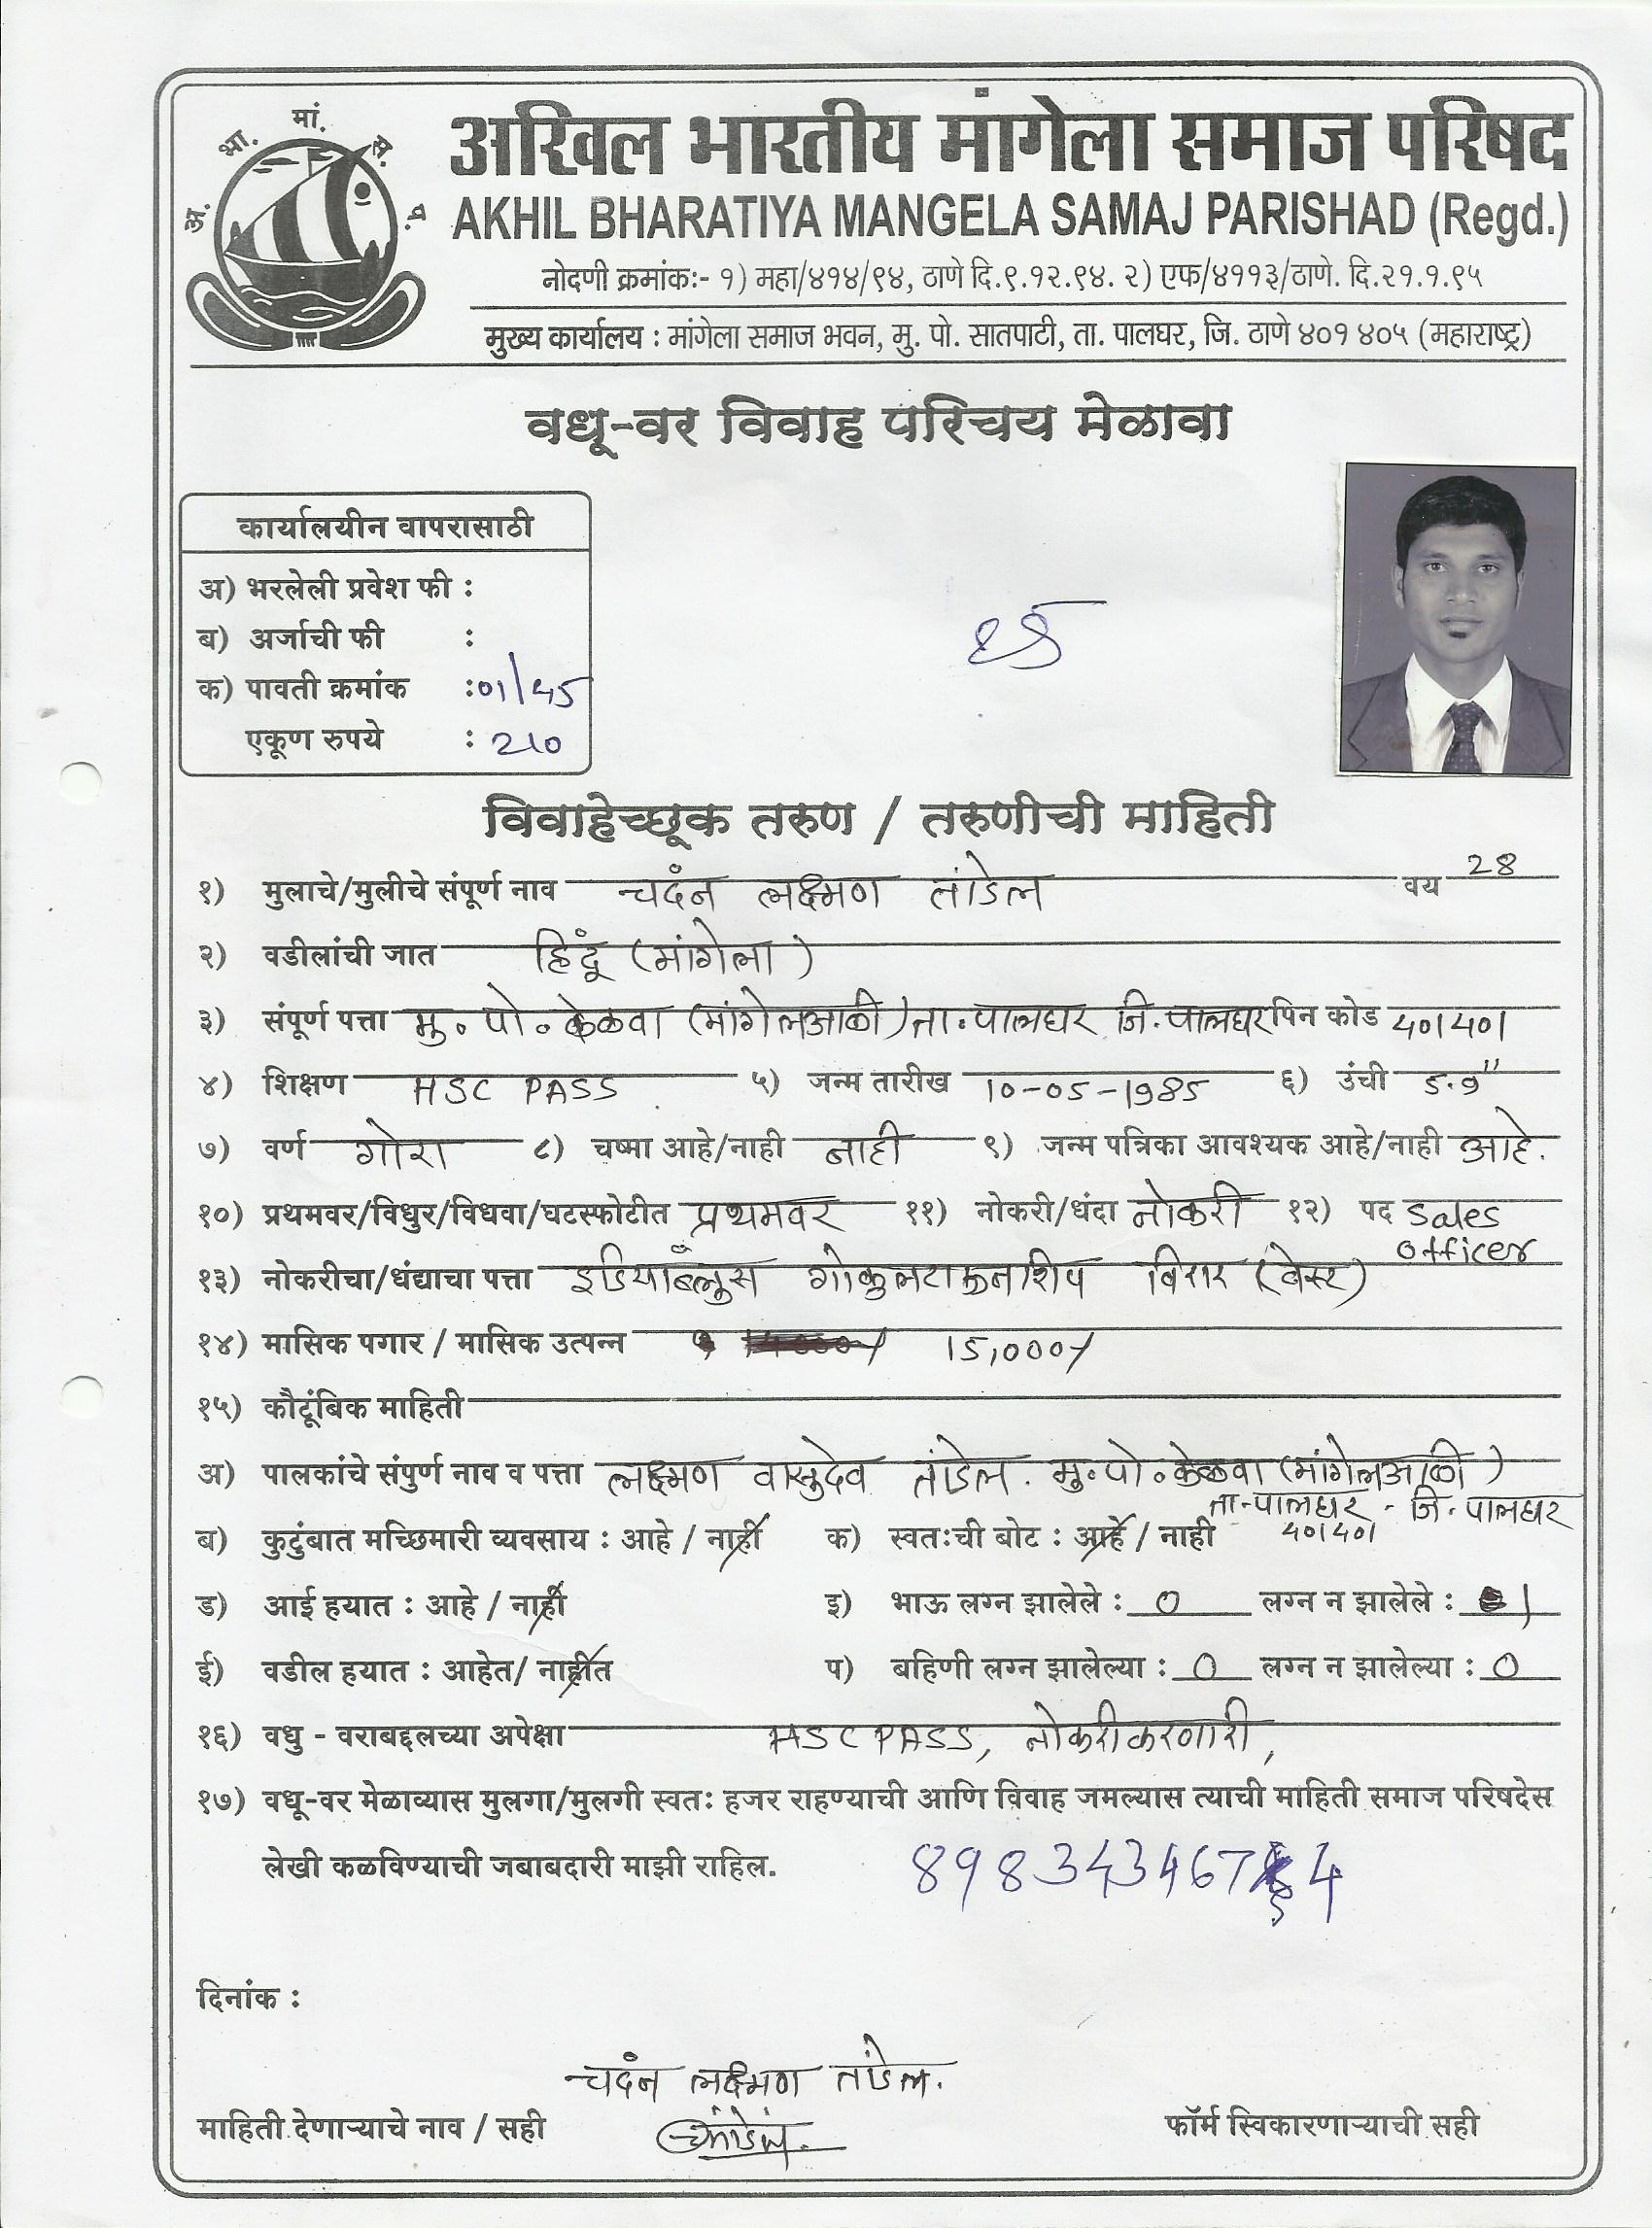 अ. भा. मां. स. प.
अखिल भारतीय मांगेला समाज परिषद
AKHIL BHARATIYA MANGELA SAMAJ PARISHAD (Regd.)
नोदणी क्रमांकः- १) महा/४१४/९४, ठाणे दि.९.१२.९४. २) एफ/४११३/ठाणे. दि.२१.१.९५
मुख्य कार्यालय : मांगेला समाज भवन, मु. पो. सातपाटी, ता. पालघर, जि. ठाणे ४०१ ४०५ (महाराष्ट्र)
वधू-वर विवाह परिचय मेळावा
कार्यालयीन वापरासाठी
अ) भरलेली प्रवेश फी :
ब) अर्जाची फी :
क) पावती क्रमांक : 01/45
एकूण रुपये : 210
विवाहेच्छूक तरुण / तरुणीची माहिती
१) मुलाचे/मुलीचे संपूर्ण नाव चदंन लक्ष्मण तांडेल वय 28
२) वडीलांची जात हिंदू (मांगेला)
३) संपूर्ण पत्ता मु. पो. केळवा (मांगेलआळी) ता. पालघर जि. पालघर पिन कोड 401401
४) शिक्षण HSC PASS ५) जन्म तारीख 10-05-1985 ६) उंची 5.9"
७) वर्ण गोरा ८) चष्मा आहे/नाही नाही ९) जन्म पत्रिका आवश्यक आहे/नाही आहे.
१०) प्रथमवर/विधुर/विधवा/घटस्फोटीत प्रथमवर ११) नोकरी/धंदा नोकरी १२) पद Sales
officer
१३) नोकरीचा/धंद्याचा पत्ता इंडियाबॅल्लुस गोकुलटाऊनशिप विरार (वेस्ट)
१४) मासिक पगार / मासिक उत्पन्न 15,000/
१५) कौटूंबिक माहिती
अ) पालकांचे संपुर्ण नाव व पत्ता लक्ष्मण वासुदेव तांडेल. मु. पो. केळवा (मांगेलआळी)
ता-पालघर - जि. पालघर
401401
ब) कुटुंबात मच्छिमारी व्यवसाय : आहे / नाही क) स्वतःची बोट : आहे / नाही
ड) आई हयात : आहे / नाही इ) भाऊ लग्न झालेले : 0 लग्न न झालेले : 1
ई) वडील हयात : आहेत/ नाहीत प) बहिणी लग्न झालेल्या : 0 लग्न न झालेल्या : 0
१६) वधु - वराबद्दलच्या अपेक्षा HSC PASS, नोकरीकरणारी,
१७) वधू-वर मेळाव्यास मुलगा/मुलगी स्वतः हजर राहण्याची आणि विवाह जमल्यास त्याची माहिती समाज परिषदेस
लेखी कळविण्याची जबाबदारी माझी राहिल.
दिनांक :
चदंन लक्ष्मण तांडेल.
माहिती देणाऱ्याचे नाव / सही
फॉर्म स्विकारणाऱ्याची सही